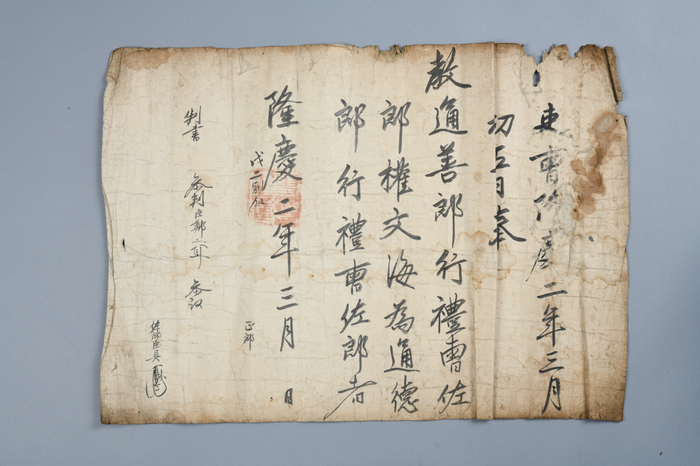 吏曹隆慶二年三月
初五日奉
教通善郎行禮曹佐
郎權文海為通德
郎行禮曹佐郎者
隆慶二年三月 日
正郎
判書 參判臣鄭 參議
佐郎臣具